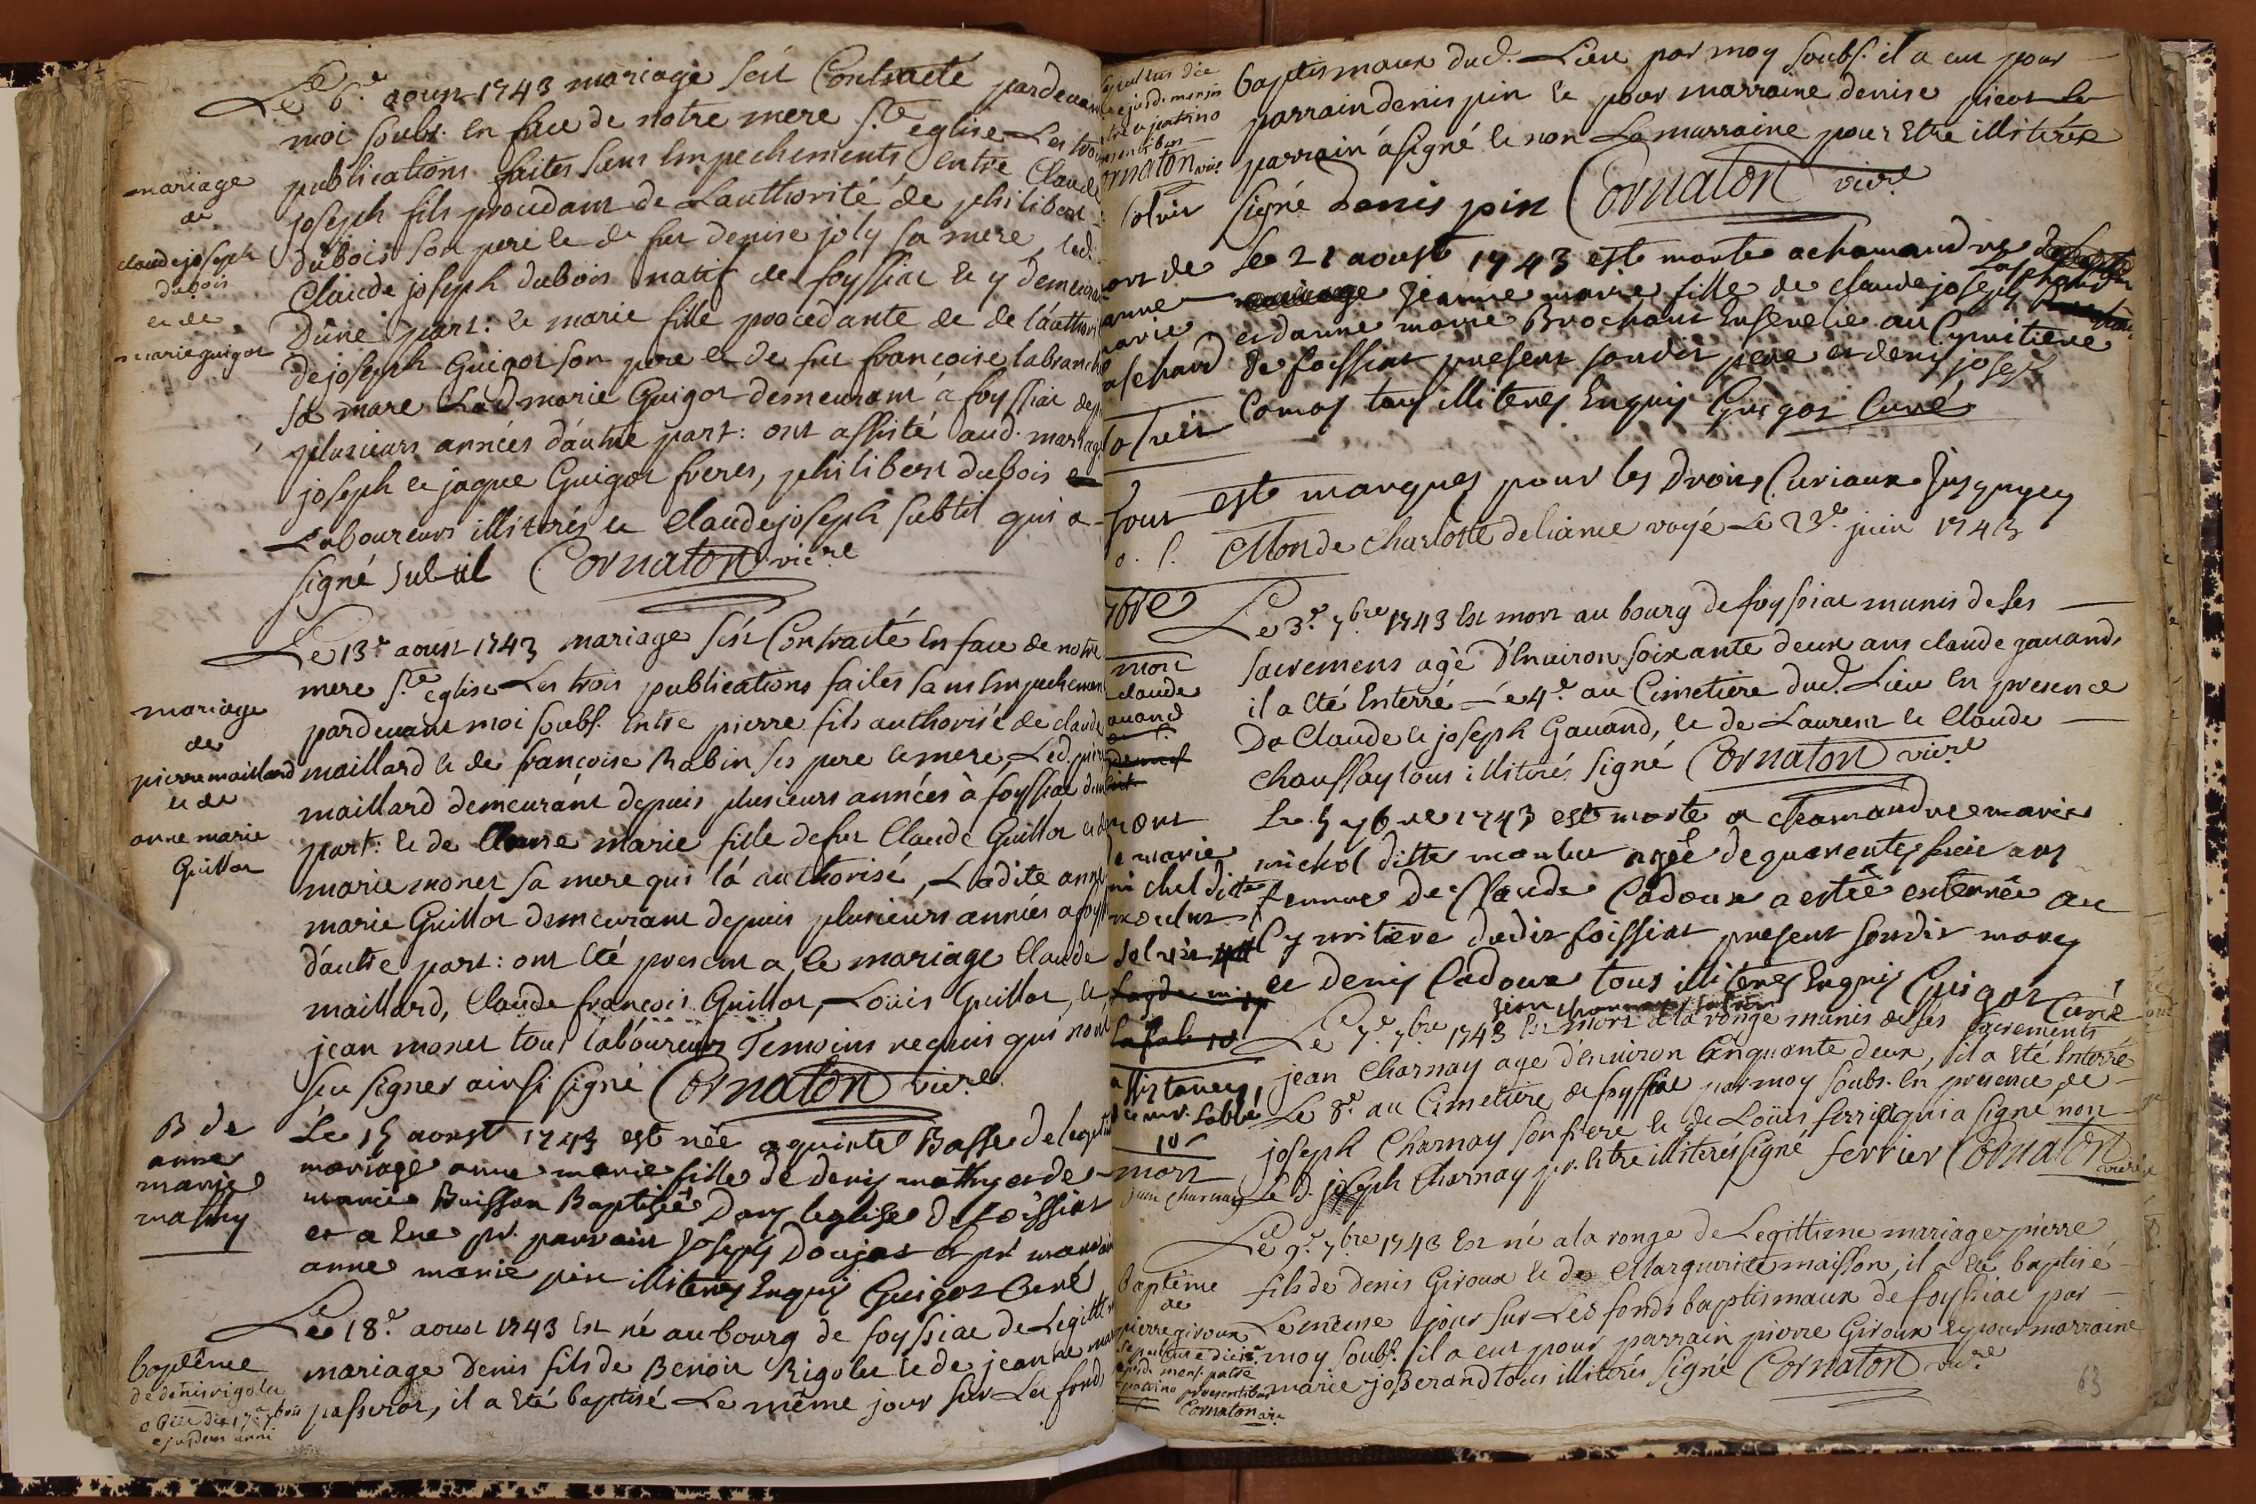 Le 6.e aoust 1743 mariage s'ést Contracté pardevant
moi soubs. en face de notre mere s.te eglise Les trois
publications faites sans Empechements entre Claude
joseph fils procedant de Lauthorité de philibert
dubois son pere et de fut denise joly sa mere, led.
Claude joseph dubois natif de foyssiac et y demeurant
Dûne part: et marie fille procedante de de l'authorité
de joseph Guigot son pere et de fut francoise labranche
sa mere Lad. marie Guigot demeurant à foyssiac depuis
plusieurs années dáutre part: ont assisté aud. mariage
joseph et jaque Guigot freres, philibert dubois
Laboureurs illiterés et Claude joseph subtil qui a
signé subtil Cornaton vic.re
mariage
de
claude joseph
dubois
et de
marie guigot
Le 13.e aoust 1743 mariage s'ést Contracté en face de notre
mere s.te eglise Les trois publications faites sans Empechement
pardevant moi soubs. Entre pierre fils authorisé de claude
maillard et de françoise Rabin ses pere et mere, Led. pierre
maillard demeuránt depuis plusieurs années à foyssiac d'une
part: et de Anne marie fille de fut Claude Guillot et de
marie monet sa mere qui l'a authorisé, Ladite anne
marie Guillot demeurant depuis plusieurs années a foyss
dáutre part: ont été present a le mariage Claude
maillard, Claude françois Guillot, Loüis Guillot, et
jean monet tous laboureurs Temoins requis qui n'ont
sçu signer ainsi signé Cornaton vic.re
mariage
de
pierre maillard
et de
anne marie
Guillot
Le 15 aoust 1743 est née a quinte Basse de legitime
mariage anne marie fille de denis mathy et de
marie Buisson Baptisée Dans leglise de foissiat
et a Eue pr. parrain Joseph Doujat et pr. marraine
anne marie pin illiteres Enquis Guigot Curé
B de
anne
marie
mathy
Le 18.e aoust 1743 Est né au bourg de foyssiac de Legitime
mariage Denis fils de Benoit Rigolet et de jeanne marie
passerat, il a été baptisé Le même jour sur Les fonds
baptême
de denis rigolet
obiit die 17.a 7bris
ejusdem anni
baptismaux dud. Lieu par moy soubs. il a eu pour
parrain denis pin et pour marraine denise picot
parrain á signé et non La marraine pour Etre illiterée
signé Denis pin Cornaton vic.re
Le 21 aoust 1743 est morte a chamandre
Jeanne marie fille de claude joseph
et danne marie Brochant Ensevelie au Cymitiere
de foissiat present sondit pere et denis joseph
Comas tous illiteres Enquis Guigot Curé
Tout est marqués pour les Droits Curiaux Jusquicy
Mon de Charlotte deliance rayé Le 23.e juin 1743
7bre
Le 3.e 7bre 1743 Est mort au bourg de foyssiac munis de ses
sacremens agé D'Environ soixante deux ans claude gavand,
il a été Enterré Le 4.e au Cimetiere dud. Lieu En presence
De Claude et joseph Gavand, et de Laurent et Claude
chaussay tous illiterés signé Cornaton vic.re
mort
claude
gavand
Le 5 7bre 1743 est morte a chamandre marie
michel ditte moulut agée de quarente six ans
femme de Claude Cadoux a estée enterrée au
Cymitiere dudit foissiat present sondit mary
et denis Cadoux tous illiteres Enquis Guigot Curé
mort
de marie
michel ditte
moulut
Le 7.e 7bre 1743 Est mort a la ronge munis de ses sacrements
jean Charnay age d'environ Cinquante deux, il a été Enterré
Le 8.e au Cimetiere de foyssiac par moy soubs. En presence de
joseph Charnay son frere et de Loüis ferrier qui a signé non
Le d. joseph Charnay pr. Etre illiterés signé ferrier Cornaton vicaire
mort
jean charnay
Le 9.e 7bre 1743 Est né a la ronge de Legitime mariage pierre
fils de denis Giroux et de Marguerite maisson, il a été baptisé
Le même jour sur Les fonds baptismaux de foyssiac par
moy soubs. il a eut pour parrain pierre Giroux et pour marraine
marie josserand tous illiterés signé Cornaton vic.re
baptême
de
pierre giroux
Cornaton vic.
63